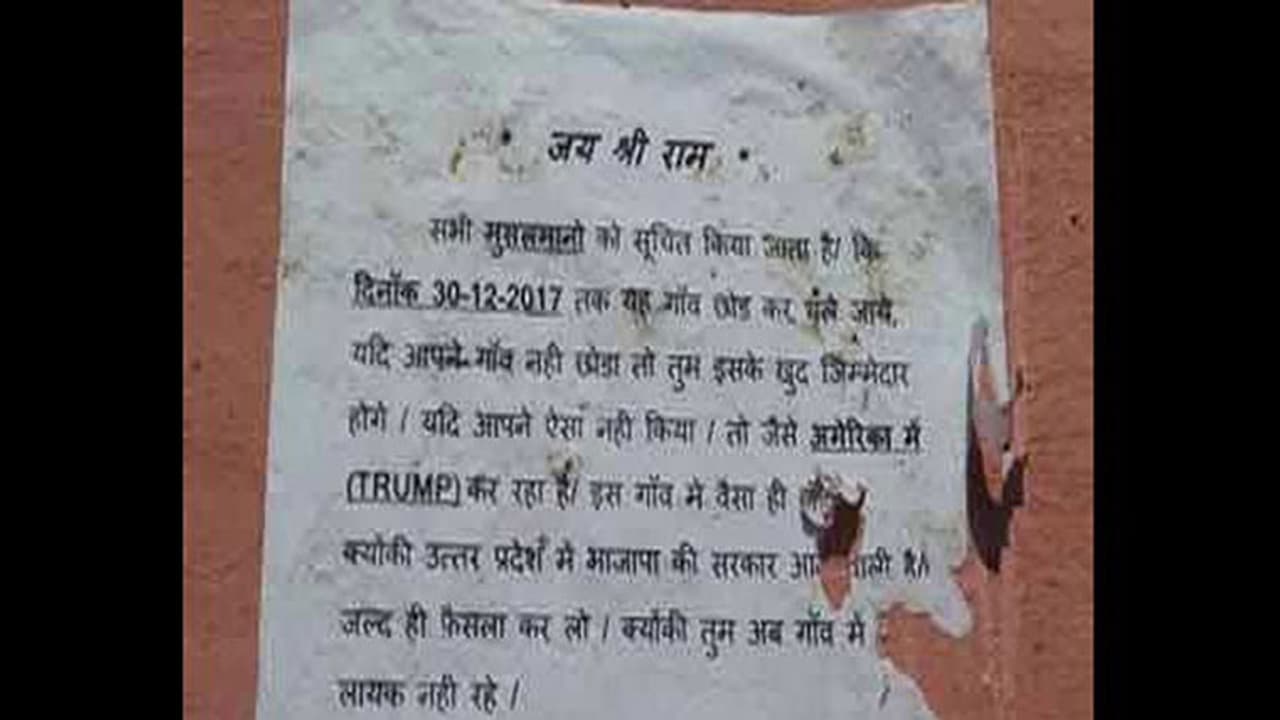 • जय श्री राम •
सभी मुसलमानो को सूचित किया जाता है/ कि
दिनॉक 30-12-2017 तक यह गॉव छोड कर चले जाये,
यदि आपने गॉव नही छोडा तो तुम इसके खुद जिम्मेदार
होगे / यदि आपने ऐसा नही किया / तो जैसे अमेरिका में
(TRUMP) कर रहा है/ इस गॉव मे वैसा ही
क्योकी उत्तर प्रदेश मे भाजापा की सरकार है//
जल्द ही फ़ैसला कर लो / क्योकी तुम अब गॉव मे
लायक नही रहे /